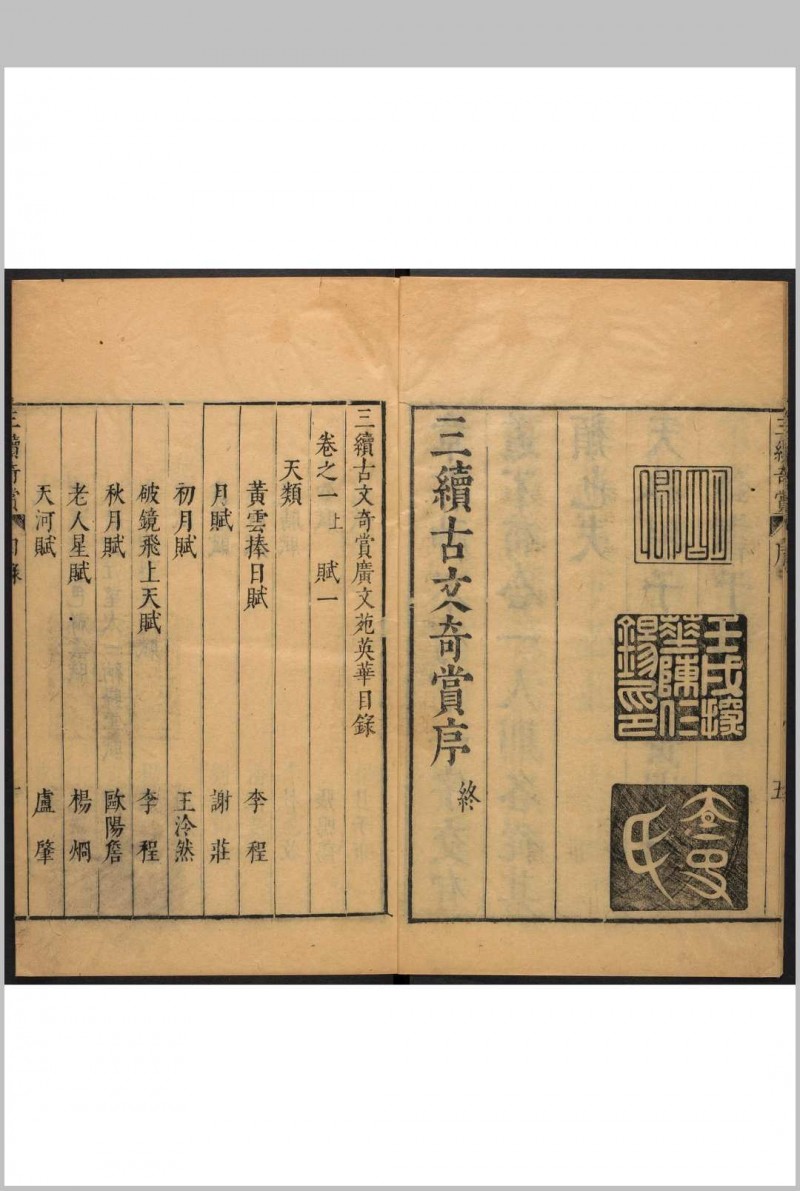 三續奇賞 序 五
明卿
壬戌探
華陳仁
錫印
太史
氏
三續古文奇賞序 終
三續古文奇賞廣文苑英華目錄
卷之一上 賦一
天類
黃雲捧日賦 李程
月賦 謝莊
初月賦 王泠然
破鏡飛上天賦 李程
秋月賦 歐陽詹
老人星賦 楊烱
天河賦 盧肇
三續奇賞 目錄 一